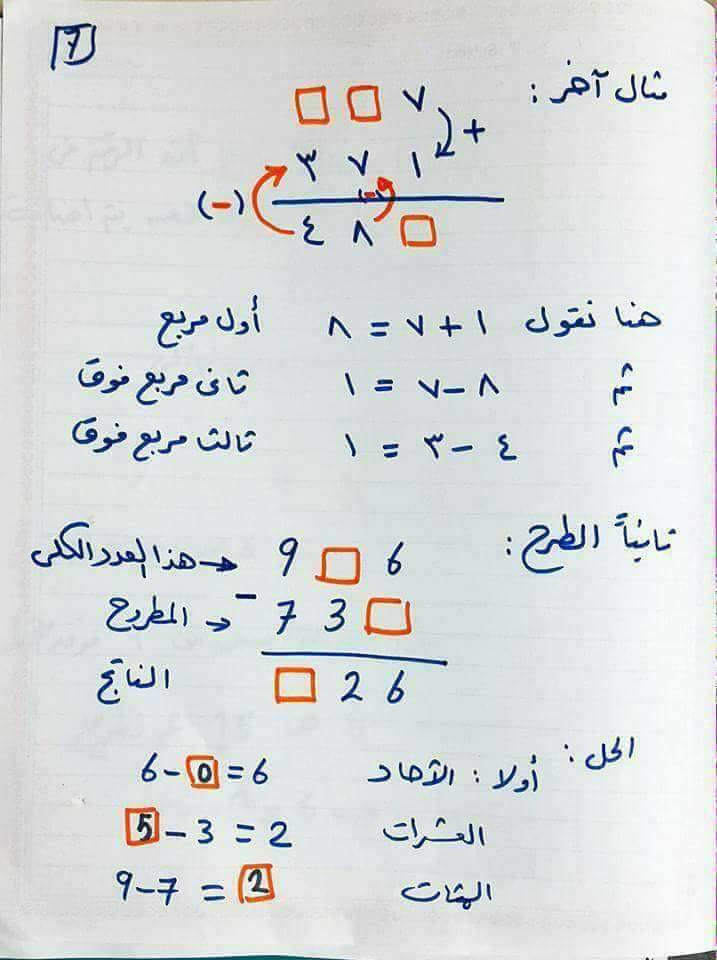 7
مثال آخر :
□ □ ٧
+
٣ ٧ ١
(-) (-)
٤ ٨ □
هنا نقول ١ + ٧ = ٨ أول مربع
ثم ٨ - ٧ = ١ ثانى مربع فوق
ثم ٤ - ٣ = ١ ثالث مربع فوق
ثانياً الطرح :
9 □ 6 → هذا العدد الكلى
- 7 3 □ → المطروح
□ 2 6 الناتج
الحل :
أولا : الآحاد 6 - 0 = 6
العشرات 5 - 3 = 2
المئات 9 - 7 = 2